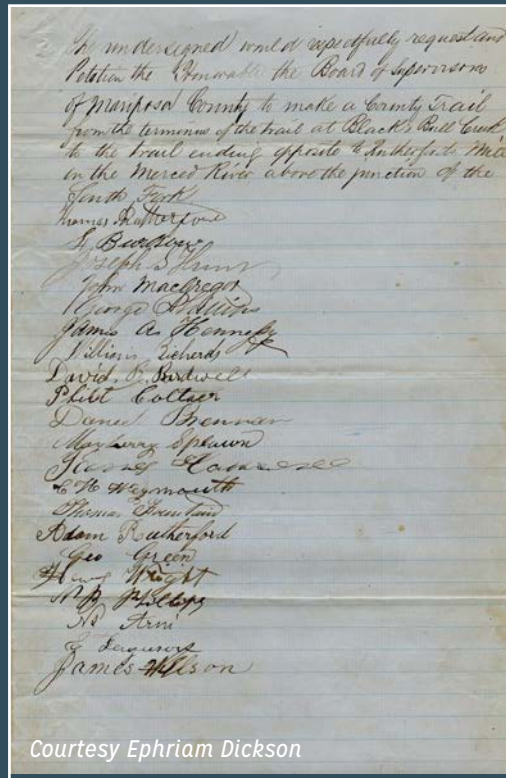 The undersigned would respectfully request and
Petotion the Honorable the Board of Supervisors
of Mariposa County to make a County Trail
from the termonus of the trail at Black's Bull Creek
to the trail ending opposite to Rutherfords Mill
on the Merced River above the junction of the
South Fork
Thomas Rutherford
Joseph S
John MacGregor
George
James A. Hennesy
William Richerds
David B. Bardwell
Philit Coltaer
Daniel Brennan
Mayberry Spawn
James
C H Weymouth
Thomas Fountain
Adam Rutherford
Geo Green
Henry Wright
N B Phillips
F Ferguson
James Wilson
Courtesy Ephriam Dickson